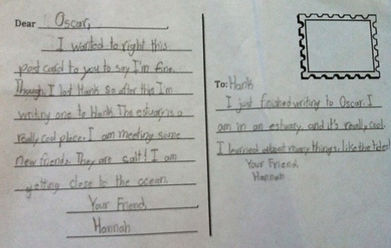 Dear Oscar,
I wanted to right this
post card to you to say I'm fine.
Though, I lost Hank so after this I'm
writing one to Hank. The estuary is a
really cool place. I am meeting some
new friends. They are salt! I am
getting close to the ocean.
Your Friend,
Hannah
To: Hank
I just finished writing to Oscar. I
am in an estuary, and it's really cool.
I learned about many things, like the tides!
Your Friend,
Hannah